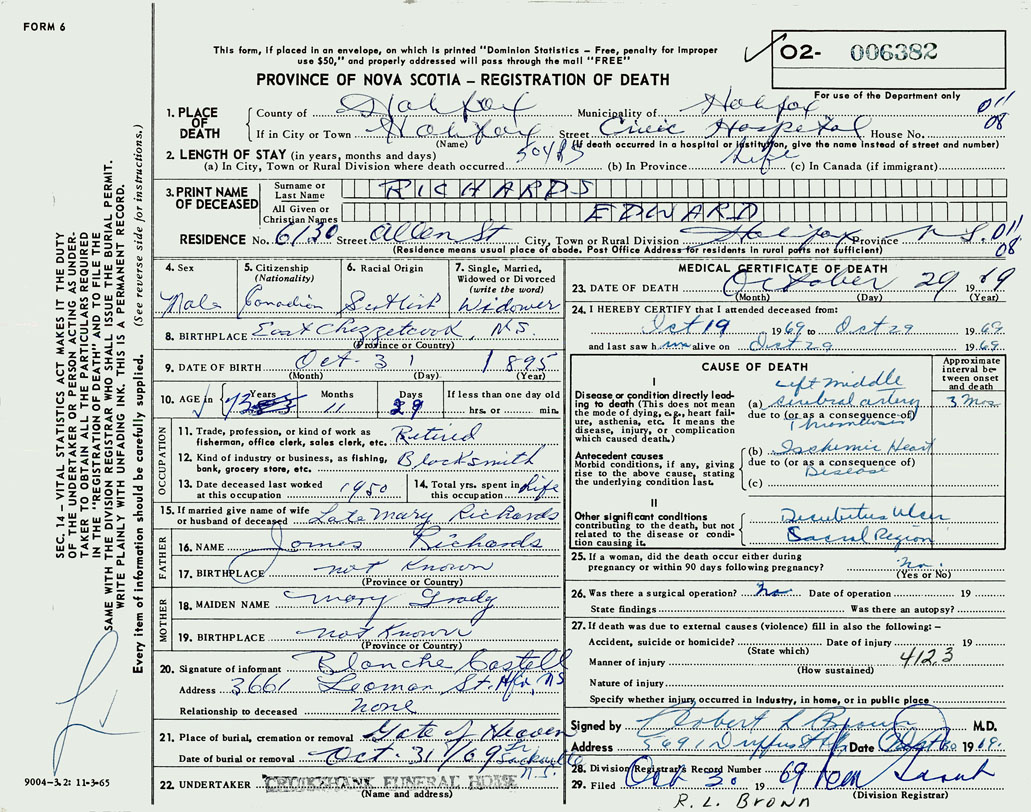 FORM 6
This form, if placed in an envelope, on which is printed "Dominion Statistics – Free, penalty for improper
use $50," and properly addressed will pass through the mail "FREE"
O2- 006382
For use of the Department only
PROVINCE OF NOVA SCOTIA – REGISTRATION OF DEATH
1. PLACE OF DEATH
County of Halifax Municipality of Halifax 011
If in City or Town Halifax Street Civic Hospital House No. 08
(Name) (If death occurred in a hospital or institution, give the name instead of street and number)
2. LENGTH OF STAY (in years, months and days)
(a) In City, Town or Rural Division where death occurred 50 yrs (b) In Province Life (c) In Canada (if immigrant)
3. PRINT NAME OF DECEASED
Surname or Last Name RICHARDS
All Given or Christian Names EDWARD
RESIDENCE No. 6130 Street Allen St City, Town or Rural Division Halifax Province N.S. 011
08
(Residence means usual place of abode. Post Office Address for residents in rural parts not sufficient)
4. Sex
Male
5. Citizenship (Nationality)
Canadian
6. Racial Origin
Scottish
7. Single, Married, Widowed or Divorced (write the word)
Widower
8. BIRTHPLACE East Chezzetcook, N.S.
(Province or Country)
9. DATE OF BIRTH Oct. 31 1895
(Month) (Day) (Year)
10. AGE in Years 73 Months 11 Days 29 If less than one day old
hrs. or min.
OCCUPATION
11. Trade, profession, or kind of work as
fisherman, office clerk, sales clerk, etc. Retired
12. Kind of industry or business, as fishing,
bank, grocery store, etc. Blacksmith
13. Date deceased last worked
at this occupation 1950
14. Total yrs. spent in
this occupation Life
15. If married give name of wife
or husband of deceased Late Mary Richards
FATHER
16. NAME James Richards
17. BIRTHPLACE not Known
(Province or Country)
MOTHER
18. MAIDEN NAME Mary Grady
19. BIRTHPLACE not Known
(Province or Country)
20. Signature of informant Blanche Castell
Address 3661 Leaman St. Hfx, NS
Relationship to deceased None
21. Place of burial, cremation or removal Gate of Heaven
Date of burial or removal Oct. 31/69 Lr Sackville
N.S.
22. UNDERTAKER CRUIKSHANK FUNERAL HOME
(Name and address)
MEDICAL CERTIFICATE OF DEATH
23. DATE OF DEATH October 29 1969
(Month) (Day) (Year)
24. I HEREBY CERTIFY that I attended deceased from:
Oct 19 1969 to Oct 29 1969
and last saw him alive on Oct 29 1969
CAUSE OF DEATH
Approximate interval between onset and death
I
Disease or condition directly leading to death (This does not mean the mode of dying, e.g., heart failure, asthenia, etc. It means the disease, injury, or complication which caused death.)
Left Middle
(a) Cerebral artery 3 Mos
due to (or as a consequence of)
Thrombosis
Antecedent causes
Morbid conditions, if any, giving rise to the above cause, stating the underlying condition last.
(b) Ischemic Heart
due to (or as a consequence of)
Disease
(c)
II
Other significant conditions
contributing to the death, but not related to the disease or condition causing it.
Decubitus Ulcer
Sacral Region
25. If a woman, did the death occur either during
pregnancy or within 90 days following pregnancy? No.
(Yes or No)
26. Was there a surgical operation? No Date of operation 19
State findings Was there an autopsy?
27. If death was due to external causes (violence) fill in also the following: –
Accident, suicide or homicide? Date of injury 19
(State which)
Manner of injury 412.3
(How sustained)
Nature of injury
Specify whether injury occurred in Industry, in home, or in public place
Signed by Robert L Brown M.D.
Address 5691 Duffus St Hfx Date Oct 30 1969.
28. Division Registrar's Record Number
29. Filed Oct 30 1969
(Division Registrar)
R. L. BROWN
SEC. 14 – VITAL STATISTICS ACT MAKES IT THE DUTY
OF THE UNDERTAKER OR PERSON ACTING AS UNDER-
TAKER TO OBTAIN ALL THE PARTICULARS REQUIRED
IN THE "REGISTRATION OF DEATH" AND TO FILE THE
SAME WITH THE DIVISION REGISTRAR WHO SHALL ISSUE THE BURIAL PERMIT.
WRITE PLAINLY WITH UNFADING INK. THIS IS A PERMANENT RECORD.
Every item of information should be carefully supplied. (See reverse side for instructions.)
9004-3.2: 11-3-65